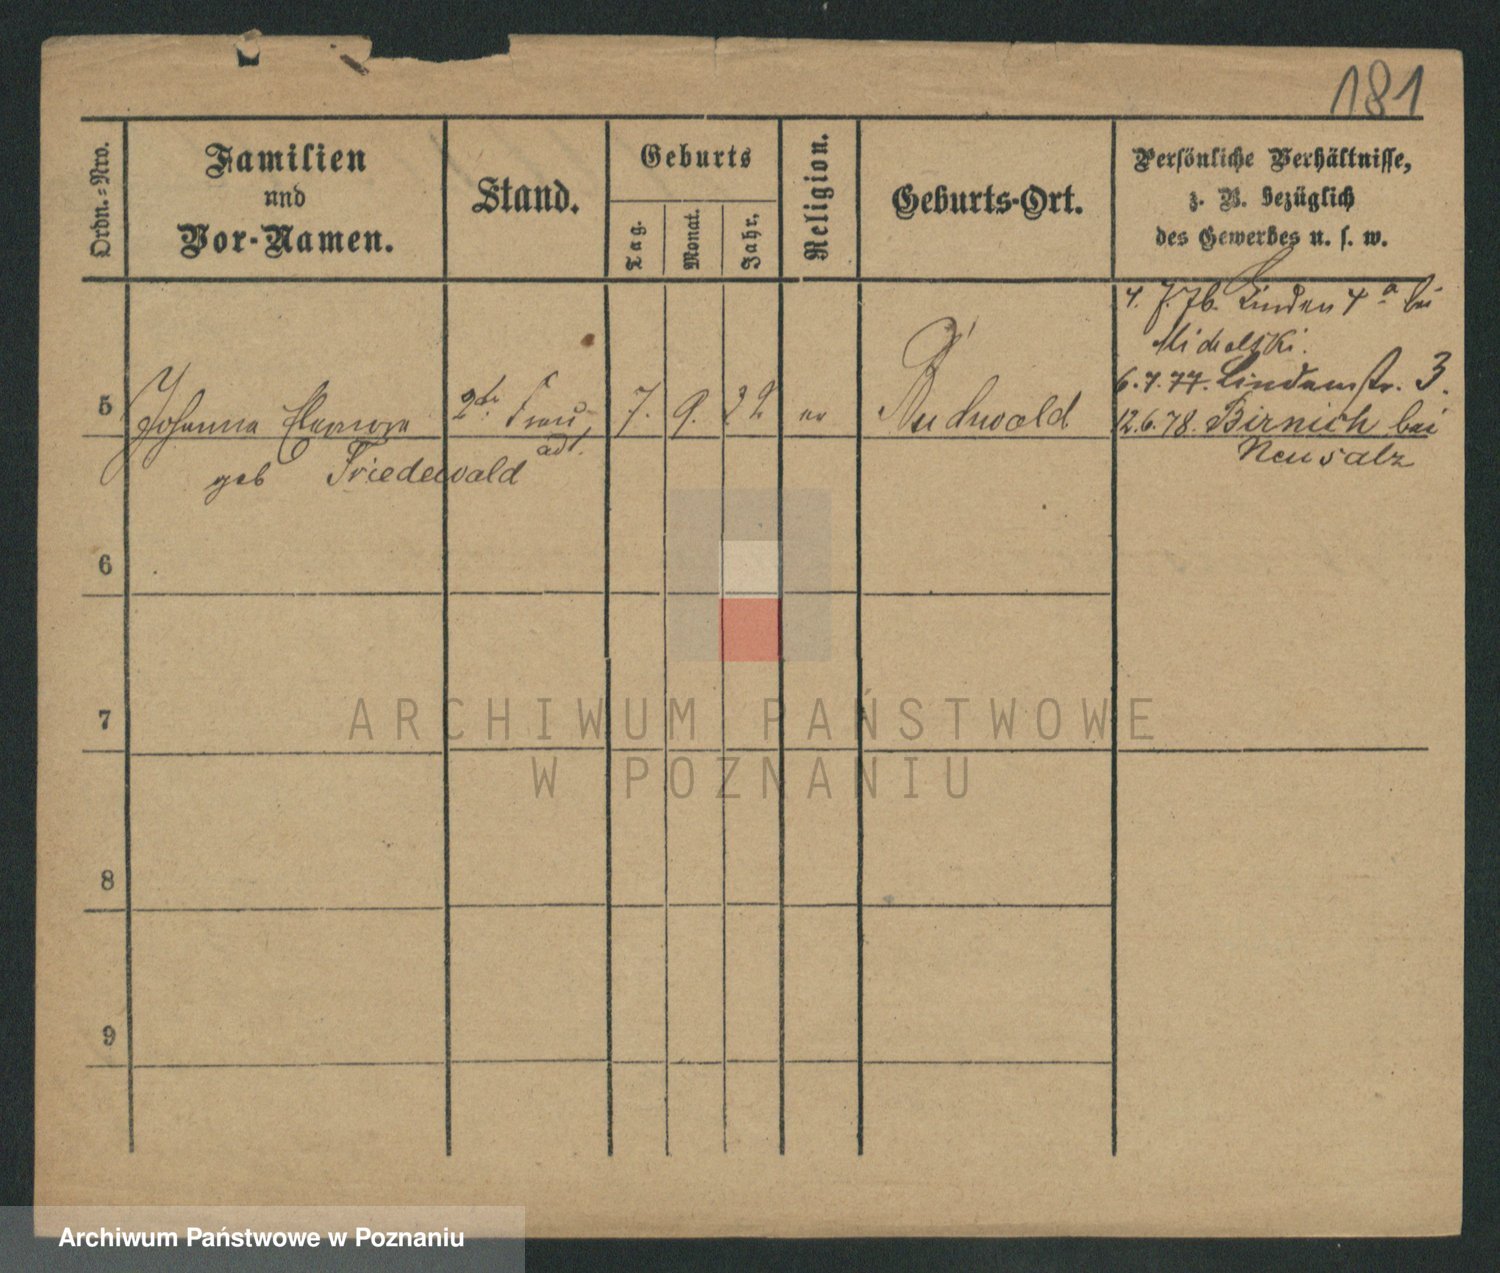 181
Ordn.=Nro.
Familien
und
Vor-Namen.
Stand.
Geburts
Tag.
Monat.
Jahr.
Religion.
Geburts-Ort.
Persönliche Verhältnisse,
z. B. bezüglich
des Gewerbes u. s. w.
4. 7. 76. Linden 4 a bei
Michalski.
6. 7. 77. Lindenstr. 3.
5 Johanna Eleonore 2te Frau 7. 9. 22 ev
12.6.78. Birnich bei
geb Friedewald
Neusalz
6
7
ARCHIWUM PAŃSTWOWE
W POZNANIU
8
9
Archiwum Państwowe w Poznaniu